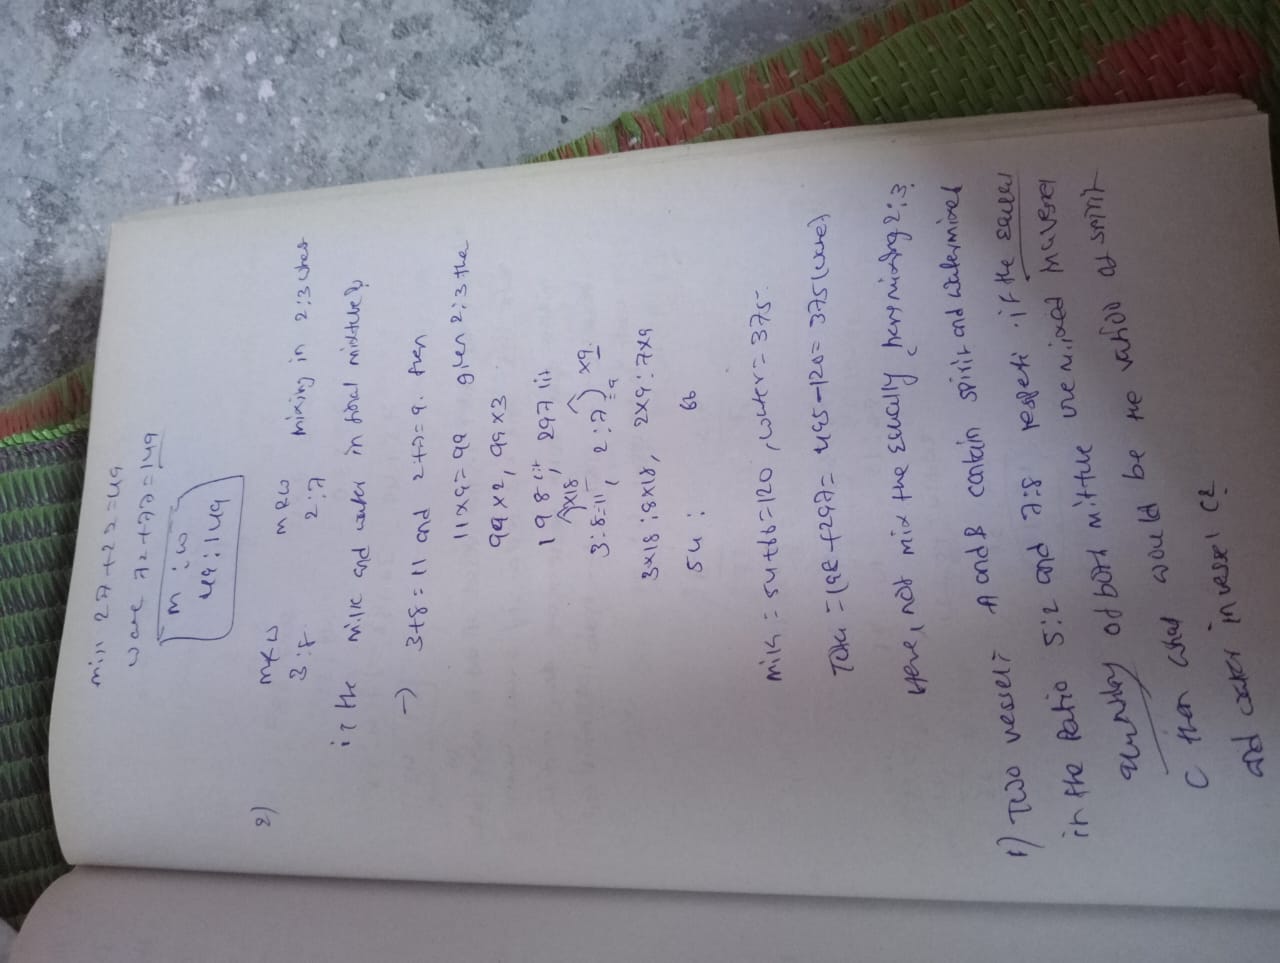 milk 27+22=49
water 72+77=149
m : w
49 : 149
2) m&w m&w
3:8 2:7 mixing in 2:3 what
is the milk and water in final mixture?
→ 3+8=11 and 2+7=9. then
11×9=99 given 2:3 the
99×2, 99×3
198 lit, 297 lit
3:8=11, 2:7) ×9
×18
9
3×18:8×18, 2×9:7×9
54: 66
milk=54+66=120, water=375.
Total=198+297=495-120=375(water)
Here, not mix the equally, mixing 2:3.
1) Two vessels A and B contain spirit and water mixed
in the Ratio 5:2 and 7:8 if the
quantity of both are mixed
C then what would be the ratio of spirit
and water in vessel C?